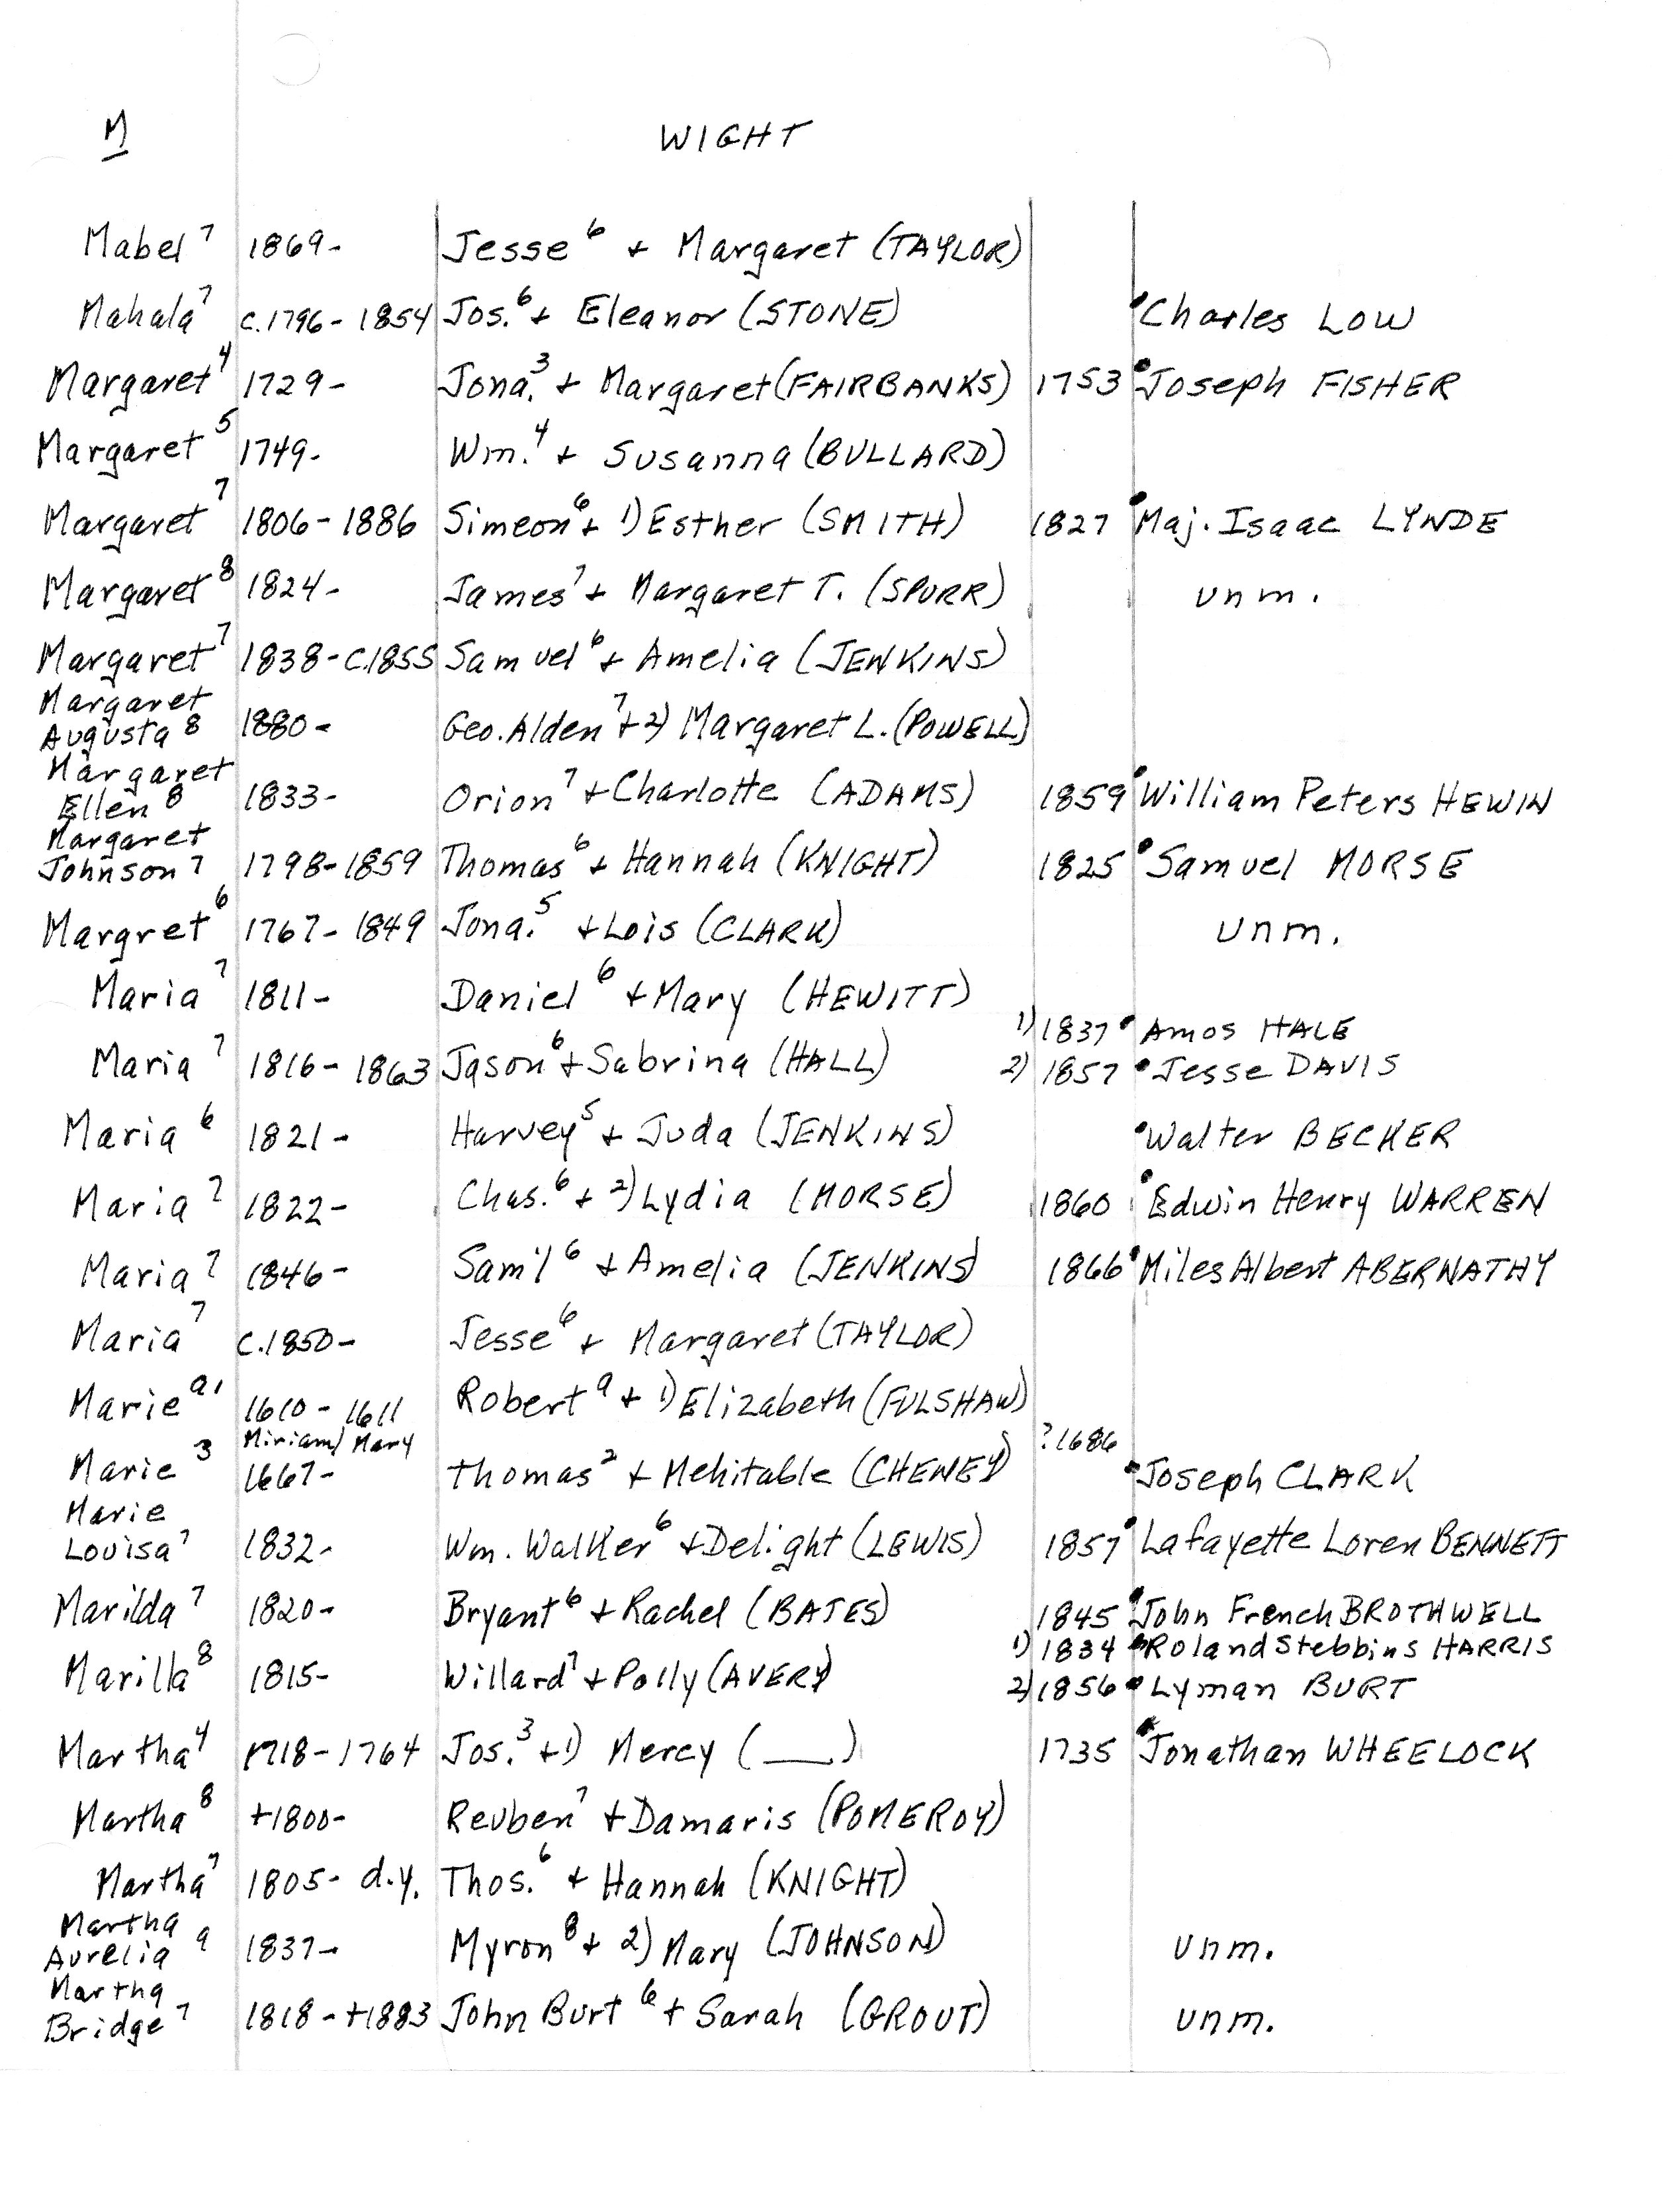 M WIGHT
Mabel 7 1869- Jesse 6 + Margaret (TAYLOR)
Mahala 7 c.1796-1854 Jos. 6 + Eleanor (STONE) Charles LOW
Margaret 4 1729- Jona. 3 + Margaret (FAIRBANKS) 1753 Joseph FISHER
Margaret 5 1749- Wm. 4 + Susanna (BULLARD)
Margaret 7 1806-1886 Simeon 6 + 1) Esther (SMITH) 1827 Maj. Isaac LYNDE
Margaret 8 1824- James 7 + Margaret T. (SPURR) unm.
Margaret 7 1838-c.1855 Samuel 6 + Amelia (JENKINS)
Margaret
Augusta 8 1880- Geo. Alden 7 + 2) Margaret L. (POWELL)
Margaret
Ellen 8 1833- Orion 7 + Charlotte (ADAMS) 1859 William Peters HEWIN
Margaret
Johnson 7 1798-1859 Thomas 6 + Hannah (KNIGHT) 1825 Samuel MORSE
Margret 6 1767-1849 Jona. 5 + Lois (CLARK) unm.
Maria 7 1811- Daniel 6 + Mary (HEWITT)
1) 1837 Amos HALE
Maria 7 1816-1863 Jason 6 + Sabrina (HALL) 2) 1857 Jesse DAVIS
Maria 6 1821- Harvey 5 + Juda (JENKINS) Walter BECKER
Maria 7 1822- Chas. 6 + 2) Lydia (MORSE) 1860 Edwin Henry WARREN
Maria 7 1846- Sam'l 6 + Amelia (JENKINS) 1866 Miles Albert ABERNATHY
Maria 7 c.1850- Jesse 6 + Margaret (TAYLOR)
Marie a1 1610-1611 Robert a + 1) Elizabeth (FULSHAW)
Miriam/Mary ?1686
Marie 3 1667- Thomas 2 + Mehitable (CHENEY) Joseph CLARK
Marie
Louisa 7 1832- Wm. Walker 6 + Delight (LEWIS) 1857 Lafayette Loren BENNETT
Marilda 7 1820- Bryant 6 + Rachel (BATES) 1845 John French BROTHWELL
1) 1834 Roland Stebbins HARRIS
Marilla 8 1815- Willard 7 + Polly (AVERY) 2) 1856 Lyman BURT
Martha 4 1718-1764 Jos. 3 + 1) Mercy (___) 1735 Jonathan WHEELOCK
Martha 8 +1800- Reuben 7 + Damaris (POMEROY)
Martha 7 1805- d.y. Thos. 6 + Hannah (KNIGHT)
Martha
Aurelia 9 1837- Myron 8 + 2) Mary (JOHNSON) unm.
Martha
Bridge 7 1818-+1883 John Burt 6 + Sarah (GROUT) unm.